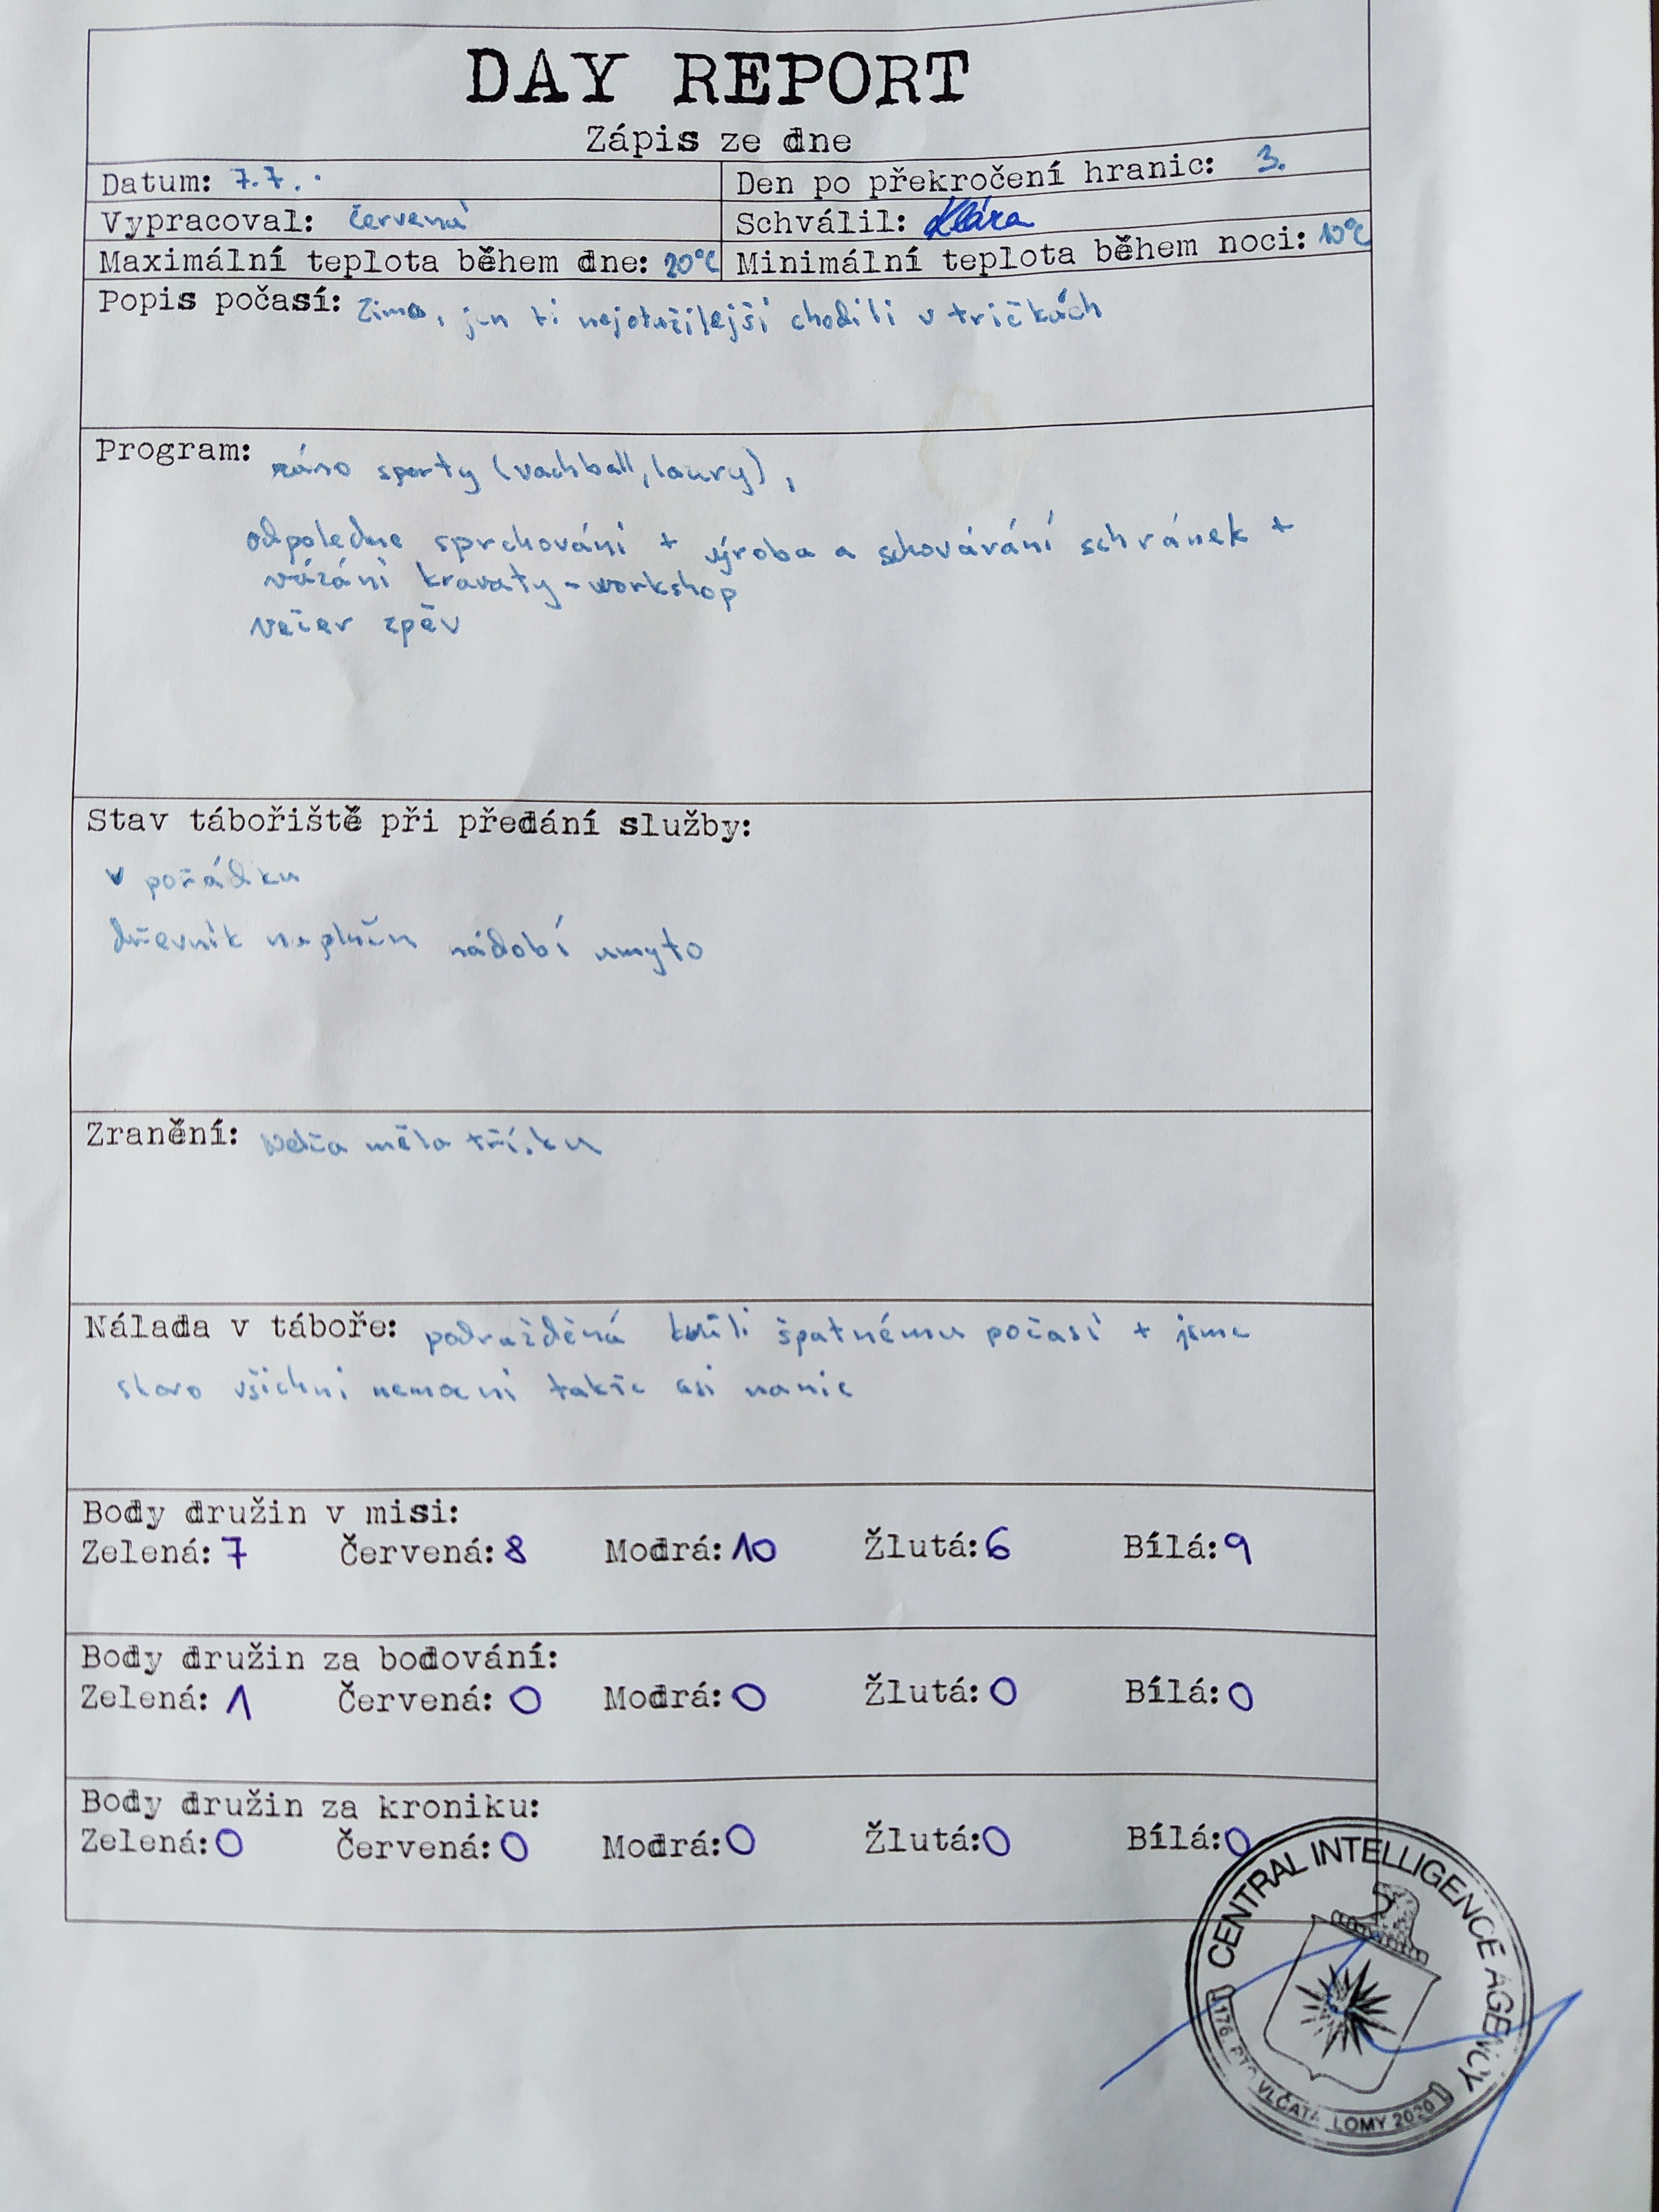 DAY REPORT
Zápis ze dne
Datum: 7.7.
Den po překročení hranic: 3.
Vypracoval: červená
Schválil: Klára
Maximální teplota během dne: 20°C
Minimální teplota během noci: 10°C
Popis počasí: Zima, jen ti nejotužilejší chodili v tričkách
Program: ráno sporty (vachball, laury),
odpoledne sprchování + výroba a schovávání schránek +
vázání kravaty - workshop
večer zpěv
Stav tábořiště při předání služby:
v pořádku
dřevník naplněn nádobí umyto
Zranění: měla třísku
Nálada v táboře: podrážděná kvůli špatnému počasí + jsme
skoro všichni nemocní takže asi nanic
Body družin v misi:
Zelená: 7 Červená: 8 Modrá: 10 Žlutá: 6 Bílá: 9
Body družin za bodování:
Zelená: 1 Červená: 0 Modrá: 0 Žlutá: 0 Bílá: 0
Body družin za kroniku:
Zelená: 0 Červená: 0 Modrá: 0 Žlutá: 0 Bílá: 0
CENTRAL INTELLIGENCE AGENCY
176. PTO VLČATA LOMY 2020